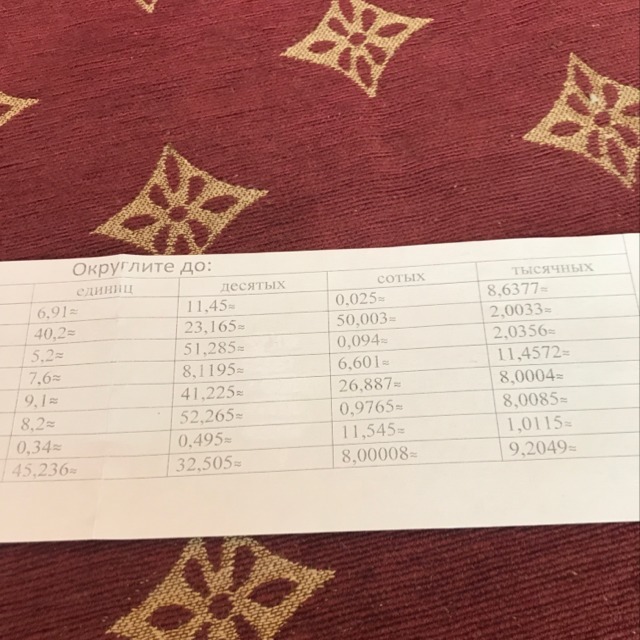 Округлите до:
единиц десятых сотых тысячных
6,91≈ 11,45≈ 0,025≈ 8,6377≈
40,2≈ 23,165≈ 50,003≈ 2,0033≈
5,2≈ 51,285≈ 0,094≈ 2,0356≈
7,6≈ 8,1195≈ 6,601≈ 11,4572≈
9,1≈ 41,225≈ 26,887≈ 8,0004≈
8,2≈ 52,265≈ 0,9765≈ 8,0085≈
0,34≈ 0,495≈ 11,545≈ 1,0115≈
45,236≈ 32,505≈ 8,00008≈ 9,2049≈